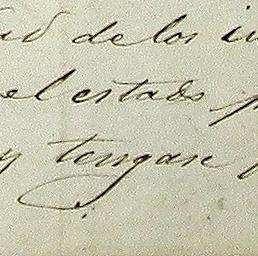 de los
el estado
y tengan